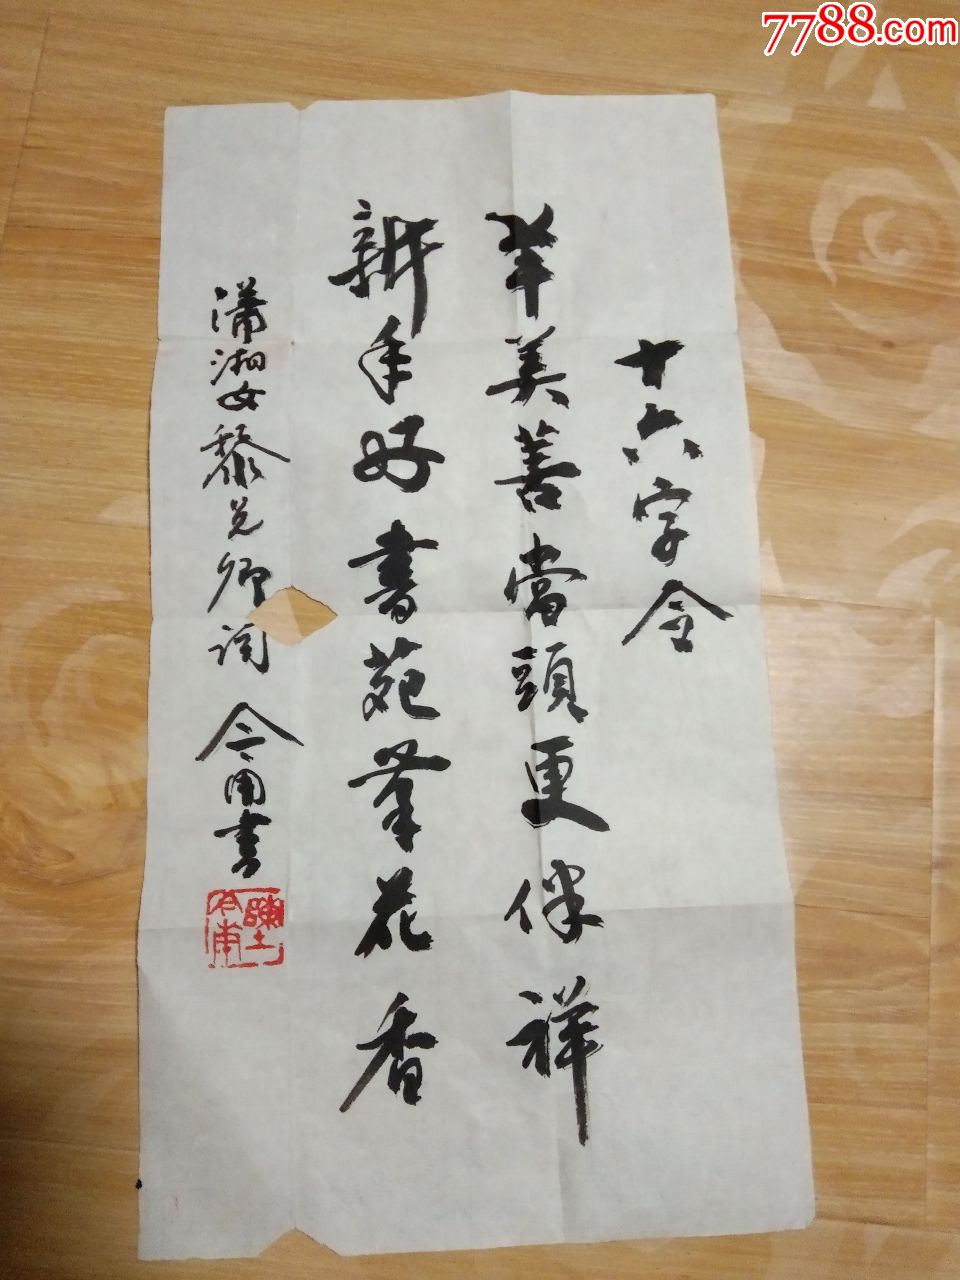 7788.com
十六字令
羊美善當頭更伴祥
新年好書苑筆花香
瀟湘女黎兑卿词 書